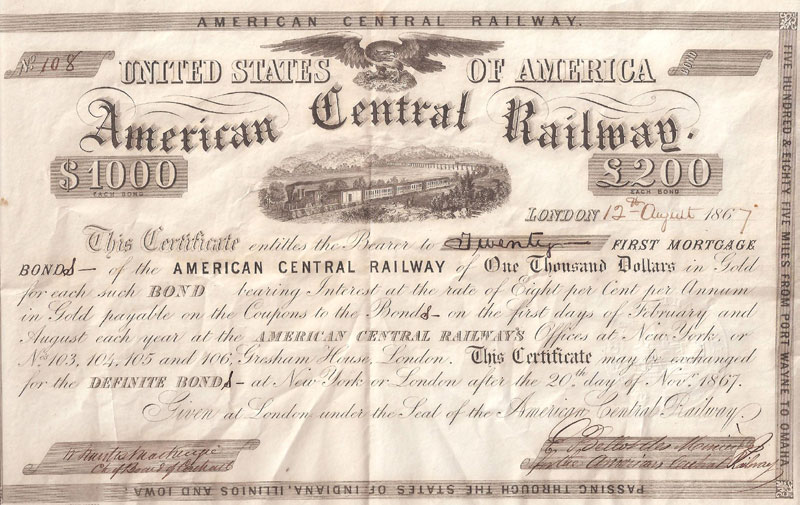 AMERICAN CENTRAL RAILWAY.
No. 108
BOND
UNITED STATES OF AMERICA
American Central Railway.
$1000 £200
EACH BOND EACH BOND
LONDON 12th August 1867
This Certificate entitles the Bearer to Twenty FIRST MORTGAGE
BONDs of the AMERICAN CENTRAL RAILWAY of One Thousand Dollars in Gold
for each such BOND bearing Interest at the rate of Eight per Cent per Annum
in Gold payable on the Coupons to the Bonds on the first days of February and
August each year at the AMERICAN CENTRAL RAILWAY'S Offices at New York, or
Nos. 103, 104, 105 and 106, Gresham House, London. This Certificate may be exchanged
for the DEFINITE BONDs at New York or London after the 20th day of Novr. 1867.
Given at London under the Seal of the American Central Railway.
FIVE HUNDRED & EIGHTY FIVE MILES FROM PORT WAYNE TO OMAHA.
PASSING THROUGH THE STATES OF INDIANA, ILLINIOS AND IOWA.